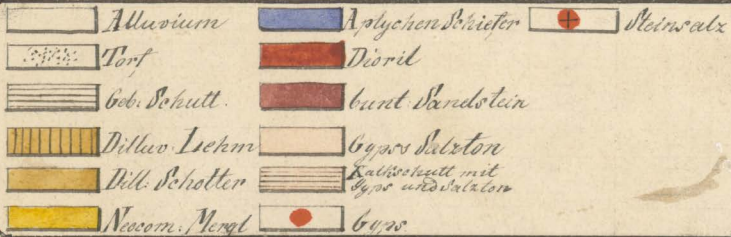 Alluvium
Torf
Geb: Schutt.
Diluv. Lehm
Dill: Schotter
Neocom: Mergl
Aplychen Schiefer
Diorit
bunt Sandstein
Gyps Salzton
Kalkschutt mit
Gyps und Salzton
Gyps
Steinsalz